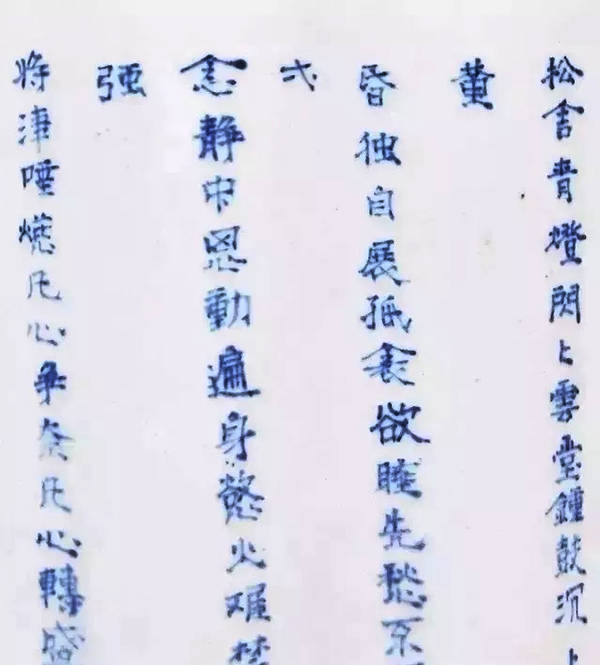 松舍青燈閃〻雲堂鍾鼓沉〻
黄
昏独自展孤衾欲睡先愁不
弌
念静中思動遍身慾火难禁
强
将津唾嚥凡心争奈凡心轉盛